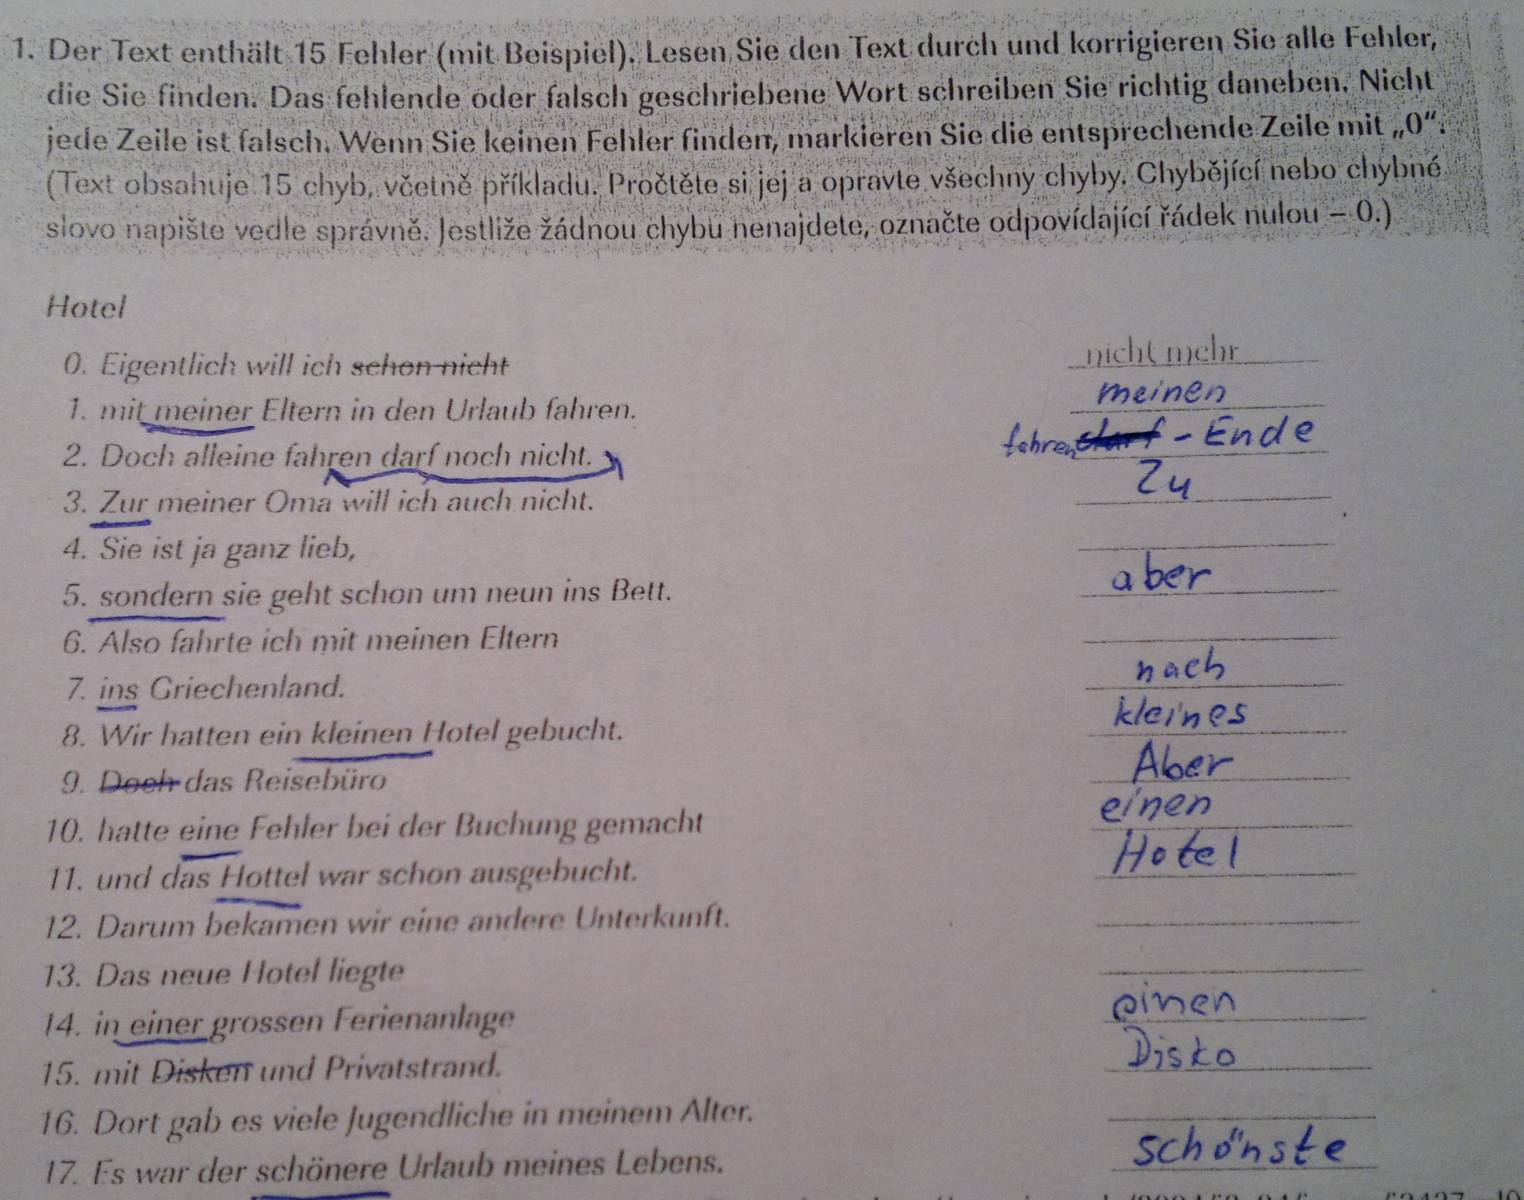 1. Der Text enthält 15 Fehler (mit Beispiel). Lesen Sie den Text durch und korrigieren Sie alle Fehler,
die Sie finden. Das fehlende oder falsch geschriebene Wort schreiben Sie richtig daneben. Nicht
jede Zeile ist falsch. Wenn Sie keinen Fehler finden, markieren Sie die entsprechende Zeile mit „0“.
(Text obsahuje 15 chyb, včetně příkladu. Pročtěte si jej a opravte všechny chyby. Chybějící nebo chybné
slovo napište vedle správně. Jestliže žádnou chybu nenajdete, označte odpovídající řádek nulou – 0.)
Hotel
0. Eigentlich will ich schon nicht nicht mehr
1. mit meiner Eltern in den Urlaub fahren. meinen
2. Doch alleine fahren darf noch nicht. fahren darf - Ende
3. Zur meiner Oma will ich auch nicht. Zu
4. Sie ist ja ganz lieb,
5. sondern sie geht schon um neun ins Bett. aber
6. Also fahrte ich mit meinen Eltern
7. ins Griechenland. nach
8. Wir hatten ein kleinen Hotel gebucht. kleines
9. Doch das Reisebüro Aber
10. hatte eine Fehler bei der Buchung gemacht einen
11. und das Hottel war schon ausgebucht. Hotel
12. Darum bekamen wir eine andere Unterkunft.
13. Das neue Hotel liegte
14. in einer grossen Ferienanlage einen
15. mit Disken und Privatstrand. Disko
16. Dort gab es viele Jugendliche in meinem Alter.
17. Es war der schönere Urlaub meines Lebens. schönste